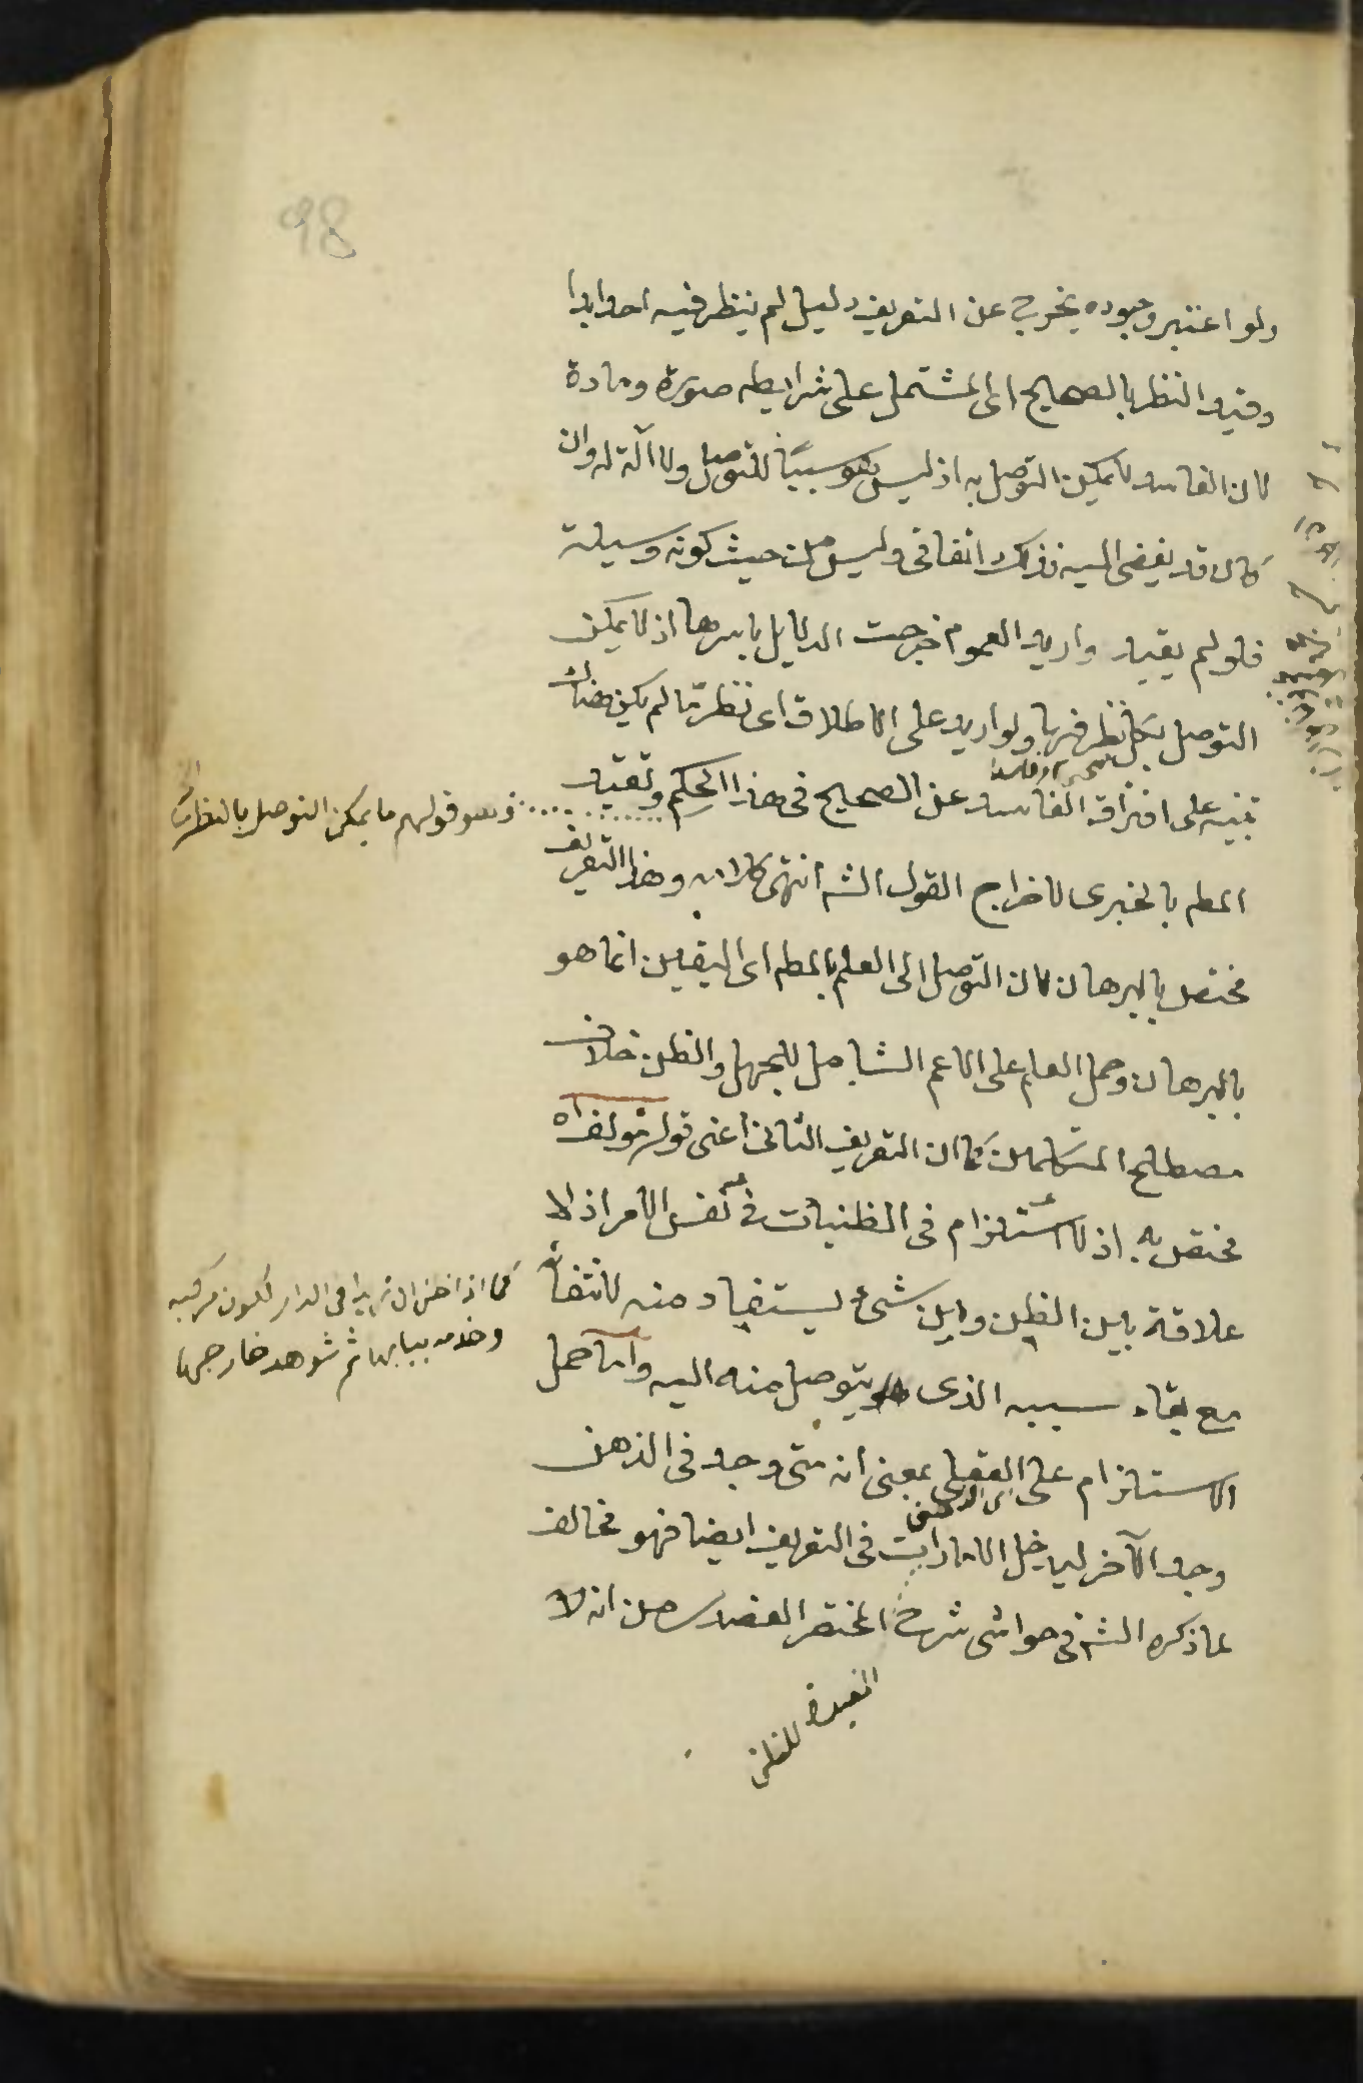 98
ولو اعتبر وجوده يخرج عن التعريف دليل لم ينظر فيه احد ابدا
وقيد النظر بالصحيح اى المشتمل على شرايطه صورة ومادة
لان الفاسد لا يمكن التوصل به اذ ليس هو سببا للتوصل ولا آلة له وان
كان قد يفضى اليه فذلك اتفاقى وليس من حيث كونه وسيلة
فلو لم يقيد واريد العموم خرجت الدلايل باسرها اذ لا يمكن
التوصل بكل نظر فيها ولو اريد على الاطلاق اى نظر ما لم يكن هناك
تنبيه على افتراق الفاسد عن الصحيح فى هذا الحكم وتقييد
المط بالخبرى لاخراج القول الش انتهى كلامه وهذا التعريف
مختص بالبرهان لان التوصل الى العلم بالمط اى اليقين انما هو
بالبرهان وحمل العلم على الاعم الشامل للجهل والظن خلاف
مصطلح المتكلمين كما ان التعريف الثانى اعنى قوله مؤلف اه
مختص به اذ لا استلزام فى الظنيات فى نفس الامر اذ لا
علاقة بين الظن وبين شئ يستفاد منه لانتفائه
مع بقاء سببه الذى يتوصل منه اليه واما حمل
الاستلزام على العقلى بمعنى انه متى وجد فى الذهن
وجد الآخر ليدخل الامارات فى التعريف ايضا فهو مخالف
لما ذكره الش فى حواشى شرح المختصر العضدى من انه لا
المفيدة للظن
وهو قولهم ما يمكن التوصل بالنظر
كما اذا ظن ان زيدا فى الدار لكون مركبه
وخدمه ببابها ثم شوهد خارجها